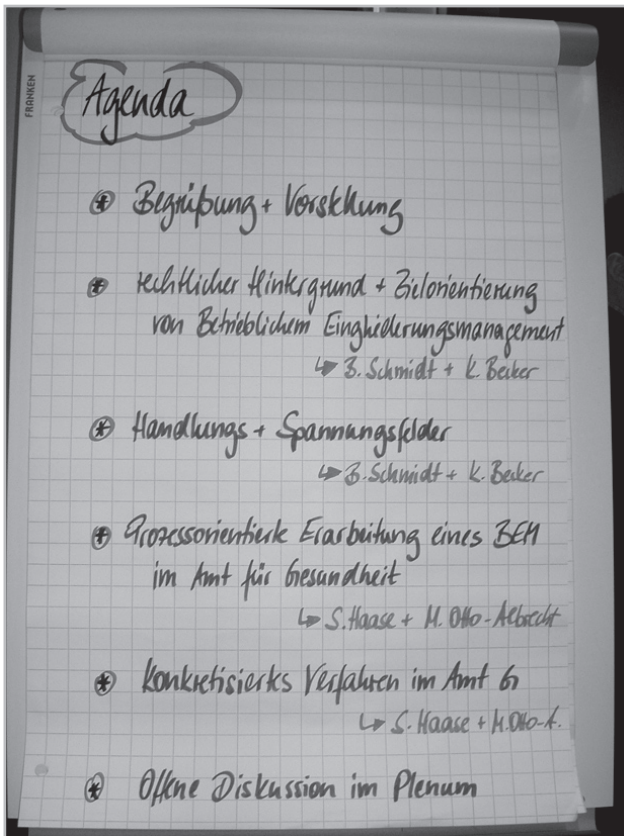 FRANKEN
Agenda
* Begrüßung + Vorstellung
* rechtlicher Hintergrund + Zielorientierung
von Betrieblichem Eingliederungsmanagement
↳ B. Schmidt + K. Becker
* Handlungs + Spannungsfelder
↳ B. Schmidt + K. Becker
* Prozessorientierte Erarbeitung eines BEM
im Amt für Gesundheit
↳ S. Haase + M. Otto-Albrecht
* Konkretisiertes Verfahren im Amt G
↳ S. Haase + M. Otto-A.
* Offene Diskussion im Plenum